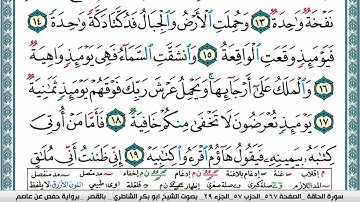 نَفْخَةٌ وَٰحِدَةٌ ١٣ وَحُمِلَتِ ٱلْأَرْضُ وَٱلْجِبَالُ فَدُكَّتَا دَكَّةً وَٰحِدَةً ١٤
فَيَوْمَئِذٍ وَقَعَتِ ٱلْوَاقِعَةُ ١٥ وَٱنشَقَّتِ ٱلسَّمَآءُ فَهِىَ يَوْمَئِذٍ وَاهِيَةٌ ١٦
وَٱلْمَلَكُ عَلَىٰٓ أَرْجَآئِهَا وَيَحْمِلُ عَرْشَ رَبِّكَ فَوْقَهُمْ يَوْمَئِذٍ ثَمَٰنِيَةٌ ١٧
يَوْمَئِذٍ تُعْرَضُونَ لَا تَخْفَىٰ مِنكُمْ خَافِيَةٌ ١٨ فَأَمَّا مَنْ أُوتِىَ
كِتَٰبَهُۥ بِيَمِينِهِۦ فَيَقُولُ هَآؤُمُ ٱقْرَءُوا۟ كِتَٰبِيَهْ ١٩ إِنِّى ظَنَنتُ أَنِّى مُلَٰقٍ
سورة الحاقة - الصفحة ٥٦٧ - الحزب ٥٧ - الجزء ٢٩ بصوت الشيخ أبو بكر الشاطري - بالقصر - برواية حفص عن عاصم